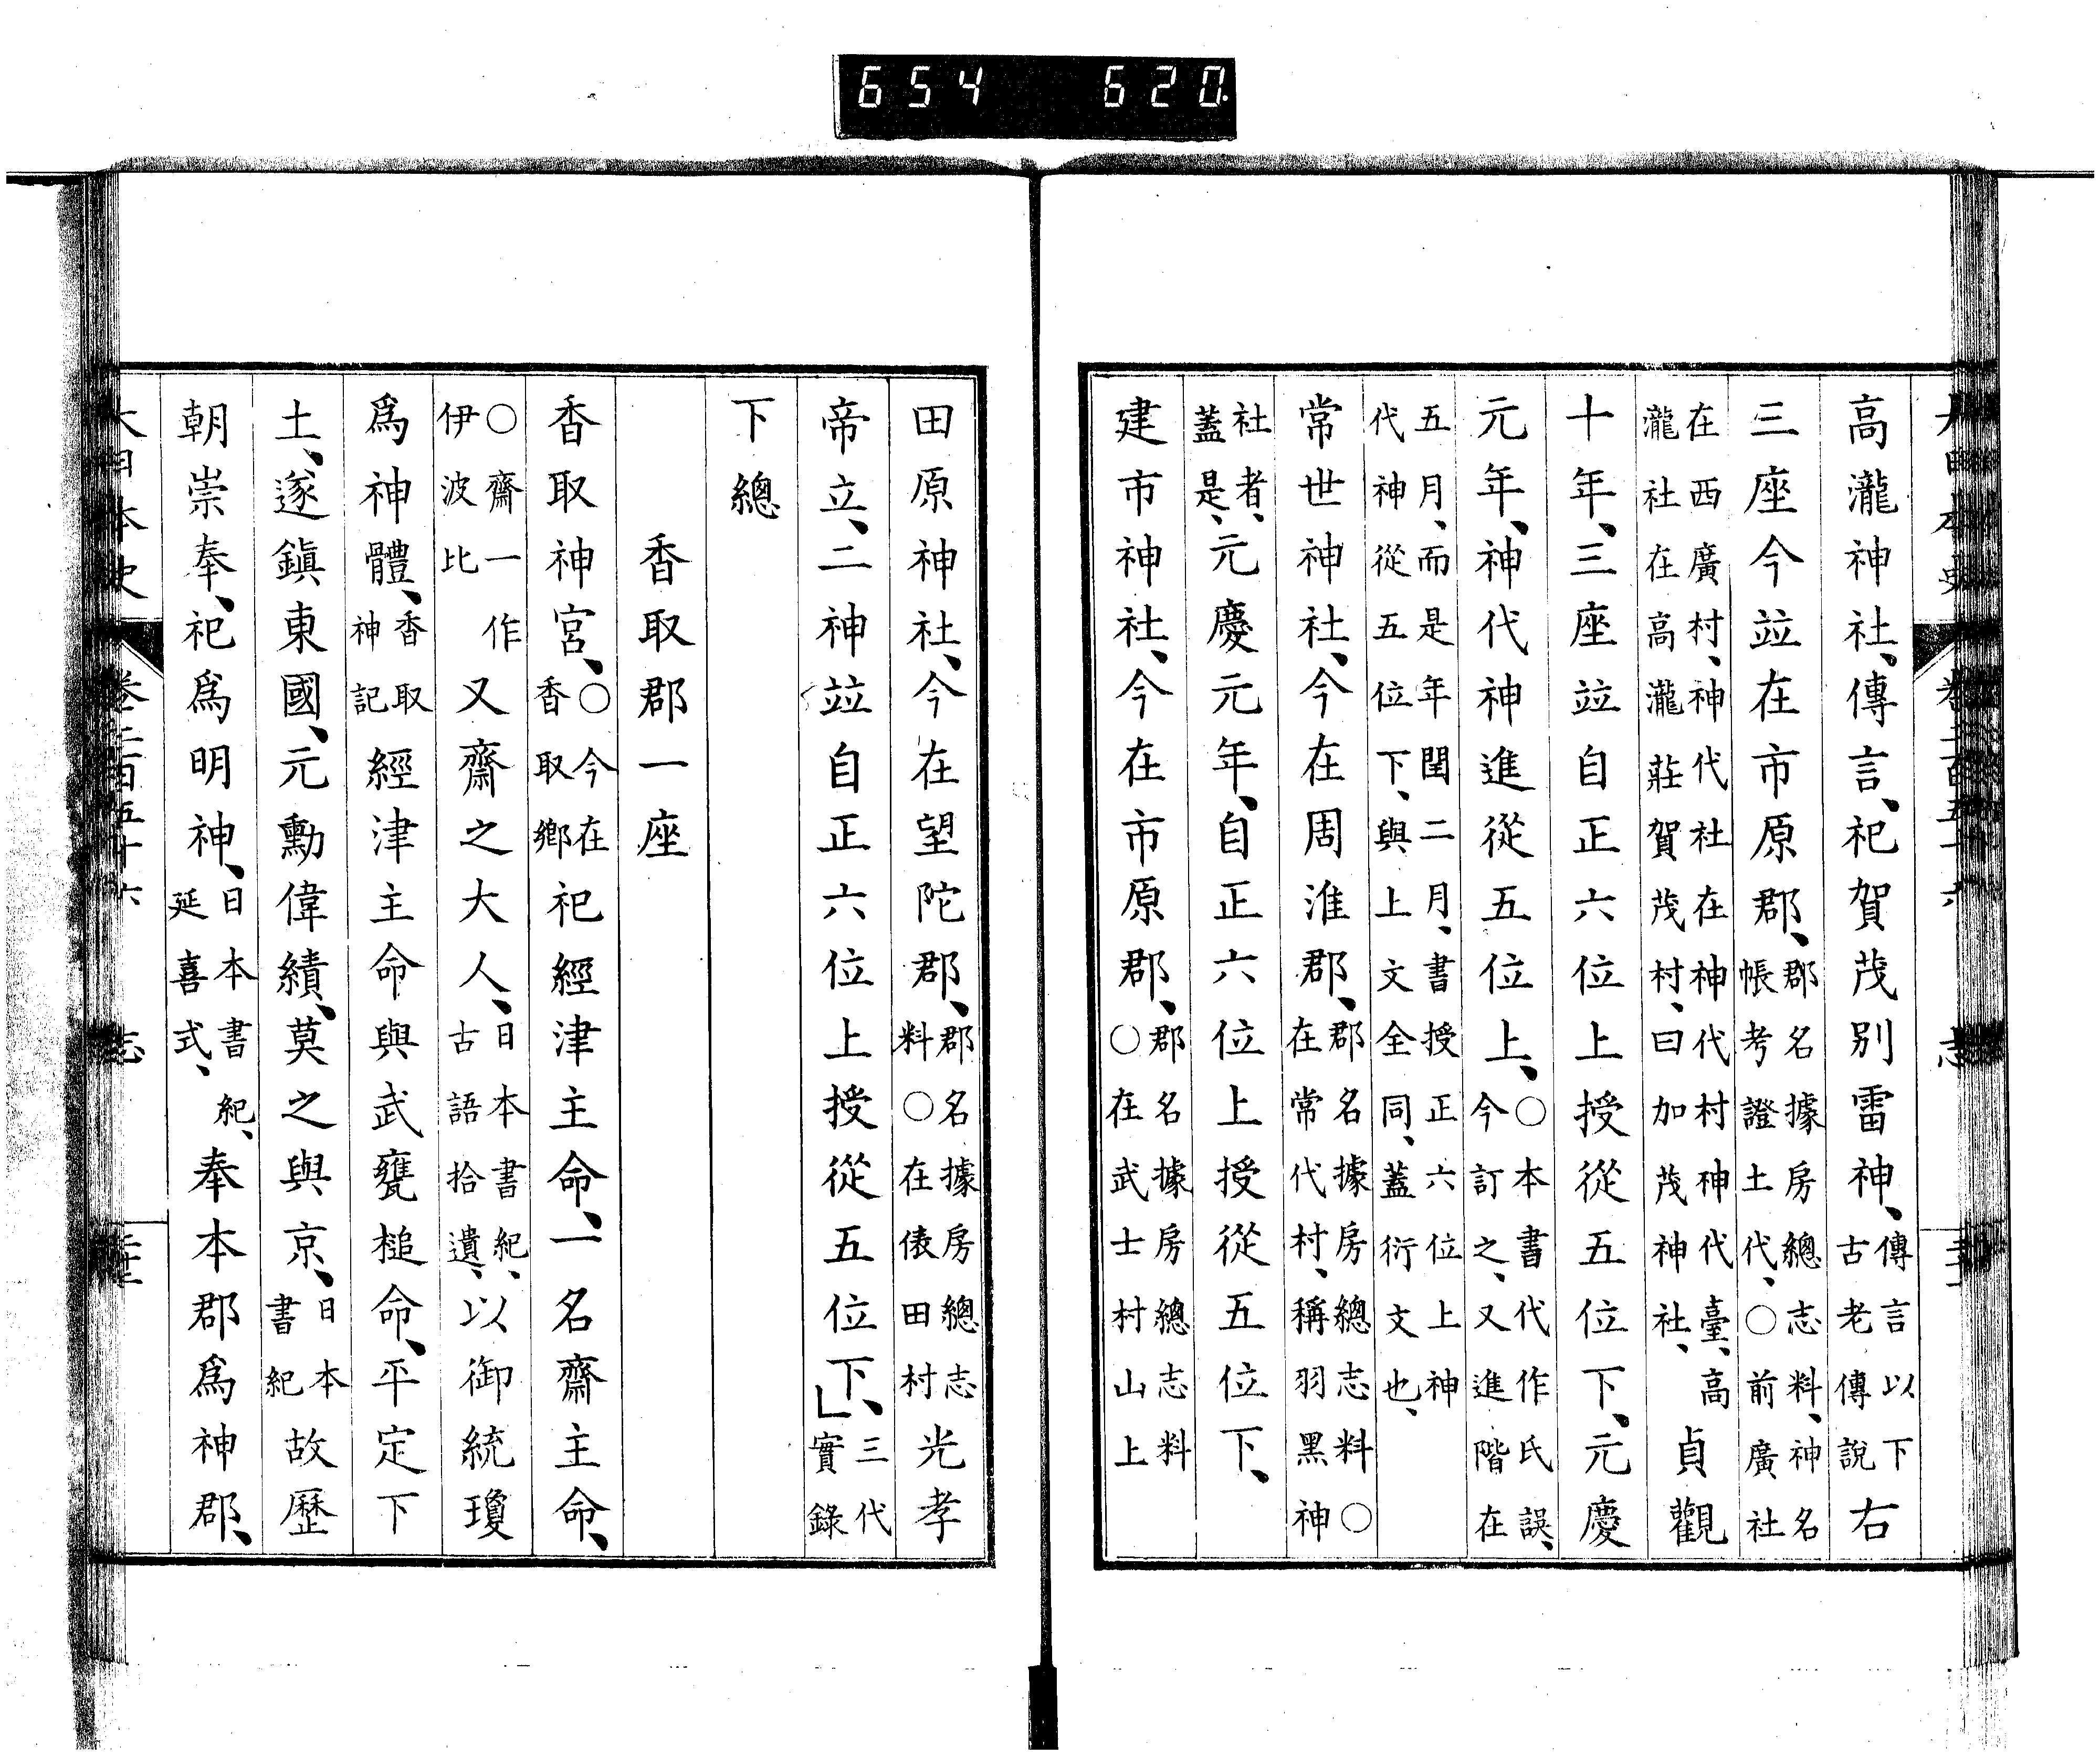 大日本史 卷二百五十六 志
高瀧神社、傳言、祀賀茂別雷神、傳言以下古老傳說右
三座今竝在市原郡、郡名據房總志料、神名帳考證土代、○前廣社
在西廣村、神代社在神代村神代臺、高瀧社在高瀧莊賀茂村、曰加茂神社、貞觀
十年、三座竝自正六位上授從五位下、元慶
元年、神代神進從五位上、○本書代作氏誤、今訂之、又進階在
五月、而是年閏二月、書授正六位上神代神從五位下、與上文全同、蓋衍文也、
常世神社、今在周淮郡、郡名據房總志料○在常代村、稱羽黑神
社者、蓋是、元慶元年、自正六位上授從五位下、
建市神社、今在市原郡、郡名據房總志料○在武士村山上
田原神社、今在望陀郡、郡名據房總志料○在俵田村光孝
帝立、二神竝自正六位上授從五位下、」三代實錄
下總
香取郡一座
香取神宮、○今在香取鄉祀經津主命、一名齋主命、
○齋一作伊波比又齋之大人、日本書紀、古語拾遺、以御統瓊
爲神體、香取神記經津主命與武甕槌命、平定下
土、遂鎭東國、元勳偉績、莫之與京、日本書紀故歷
朝崇奉、祀爲明神、日本書紀、延喜式、奉本郡爲神郡、
大日本史 卷二百五十六 志